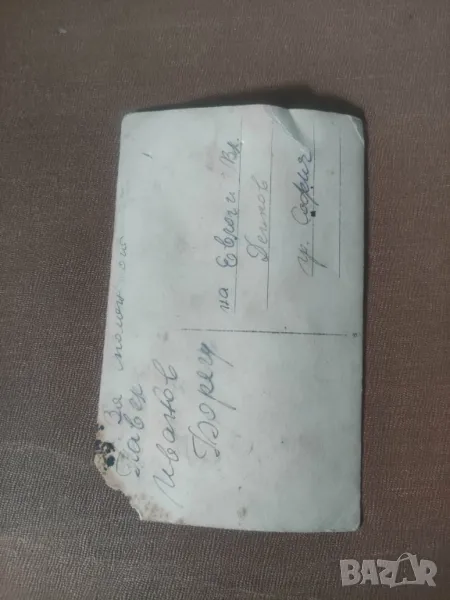 За спомен от
Павел
Иванов
Борец
на Евроги Вл.
Деянов
гр. София
BAZAR